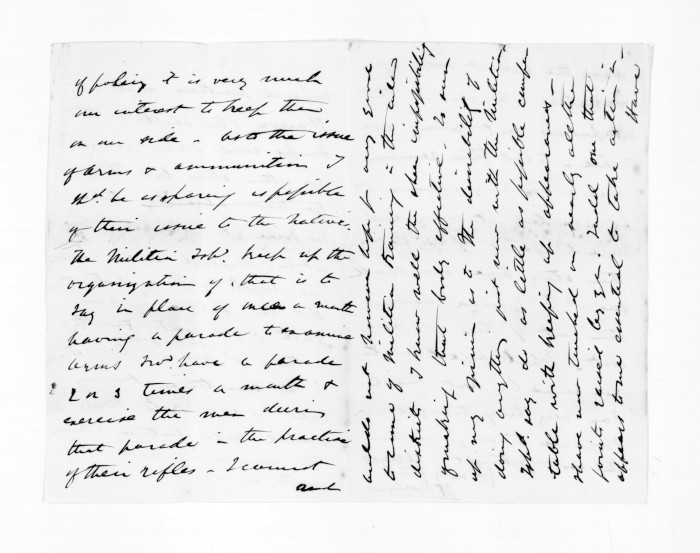 of policy & it is very much
our interest to keep them
on our side. As to the issue
of arms & ammunition I
shd. be as sparing as possible
of their issue to the Natives.
The Militia I shd. keep up the
organization of, that is to
say in place of once a month
having a parade to examine
arms I wd. have a parade
2 or 3 times a month &
exercise the men during
that parade in the practice
of their rifles. I cannot
and
and do not however hope for any good
to come of Militia training in the
districts I know well the utter impossibility
making that body effective. To sum
up my opinion as to the desirability of
doing anything just now with the Militia
Wd. say do as little as possible
table with keeping up appearances.
I have now touched on nearly all the
points raised by you. Indeed one that
appears to me essential to take action in
Have